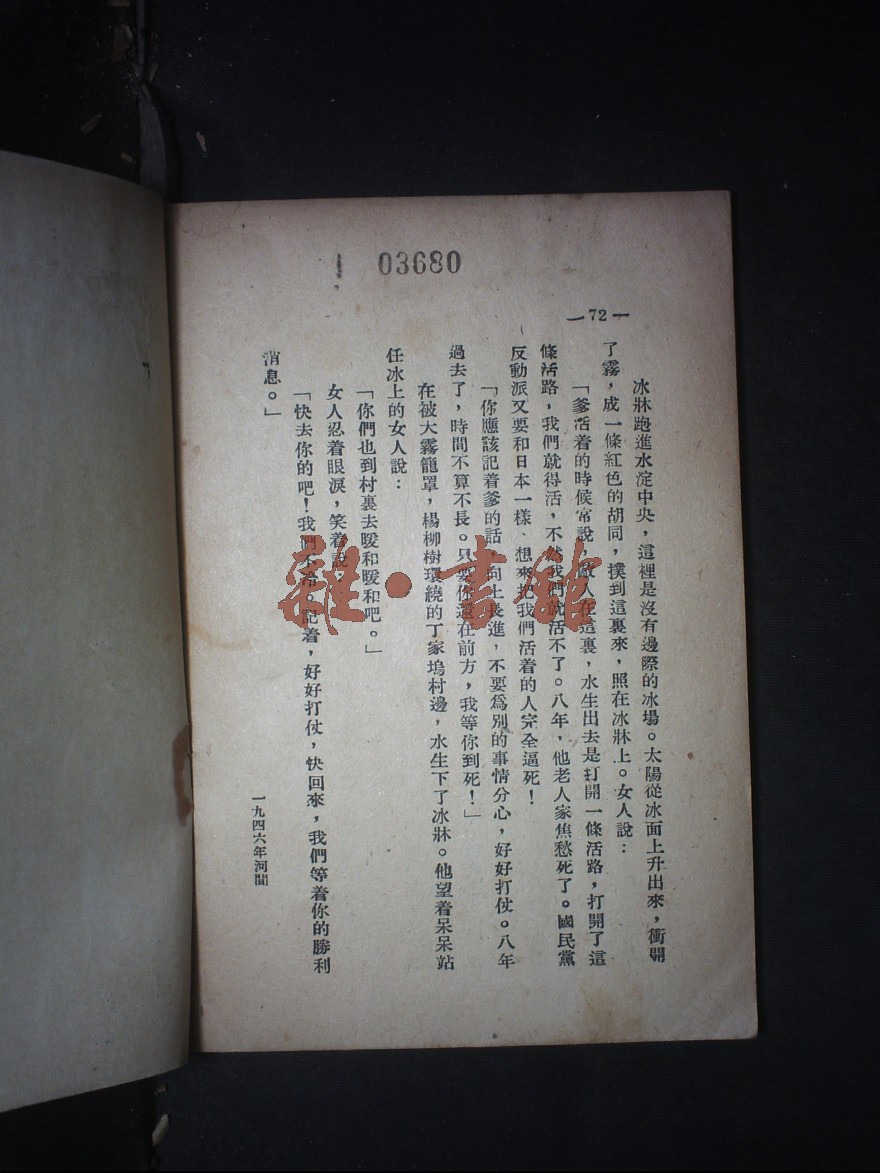 03680
—72—
冰牀跑進水淀中央，這裡是沒有邊際的冰場。太陽從冰面上升出來，衝開
了霧，成一條紅色的胡同，撲到這裏來，照在冰牀上。女人說：
「爹活着的時候常說，敵人在這裏，水生出去是打開一條活路，打開了這
條活路，我們就得活，不然我們就活不了。八年，他老人家焦愁死了。國民黨
反動派又要和日本一樣、想來把我們活着的人完全逼死！
「你應該記着爹的話，向上長進，不要爲別的事情分心，好好打仗。八年
過去了，時間不算不長。只要你還在前方，我等你到死！」
在被大霧籠罩，楊柳樹環繞的丁家塢村邊，水生下了冰牀。他望着呆呆站
任冰上的女人說：
「你們也到村裏去暖和暖和吧。」
女人忍着眼淚，笑着說：
「快去你的吧！我們不冷。記着，好好打仗，快回來，我們等着你的勝利
消息。」
一九四六年河間
雜·書館